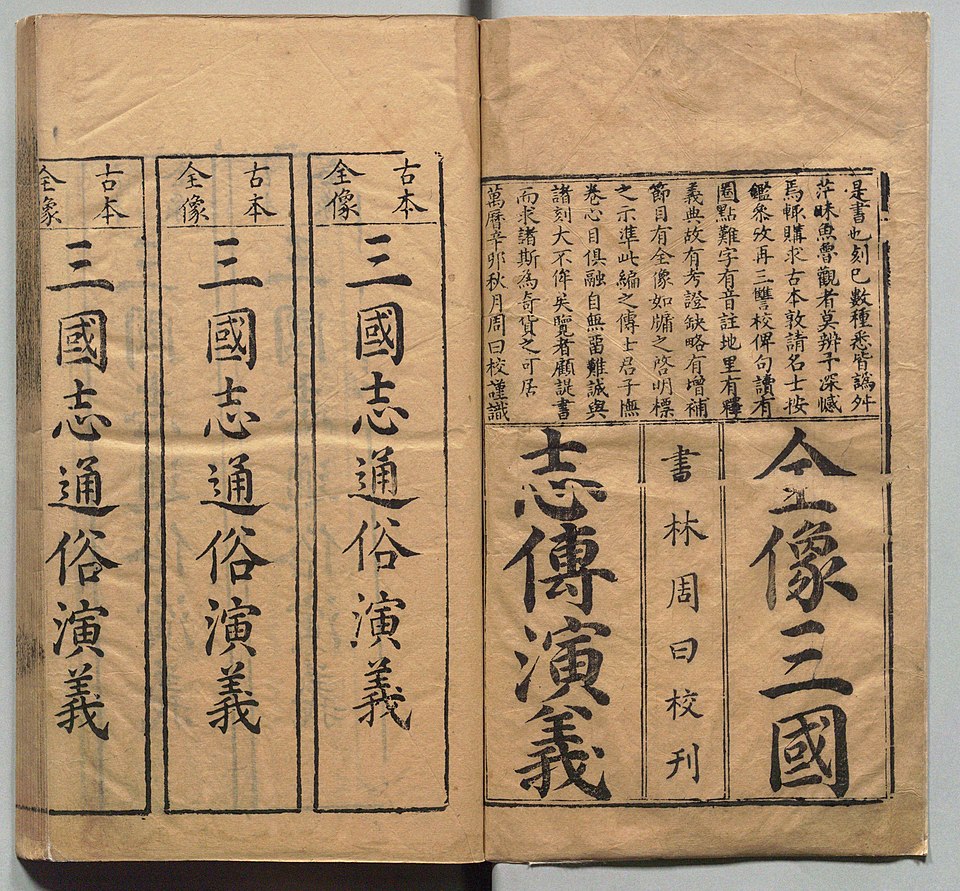 是書也刻已數種悉皆譌舛
茫昧魚魯觀者莫辨予深憾
焉輒購求古本敦請名士按
鑑叅攷再三讐校俾句讀有
圈點難字有音註地里有釋
義典故有考證缺略有增補
節目有全像如牖之啓明標
之示準此編之傳士君子憮
卷心目俱融自無畱難誠與
諸刻大不侔矣覽者顧諟書
而求諸斯為奇貨之可居
萬曆辛卯秋月周曰校謹識
全像三國
書林周曰校刊
志傳演義
古本
全像
三國志通俗演義
古本
全像
三國志通俗演義
古本
全像
三國志通俗演義